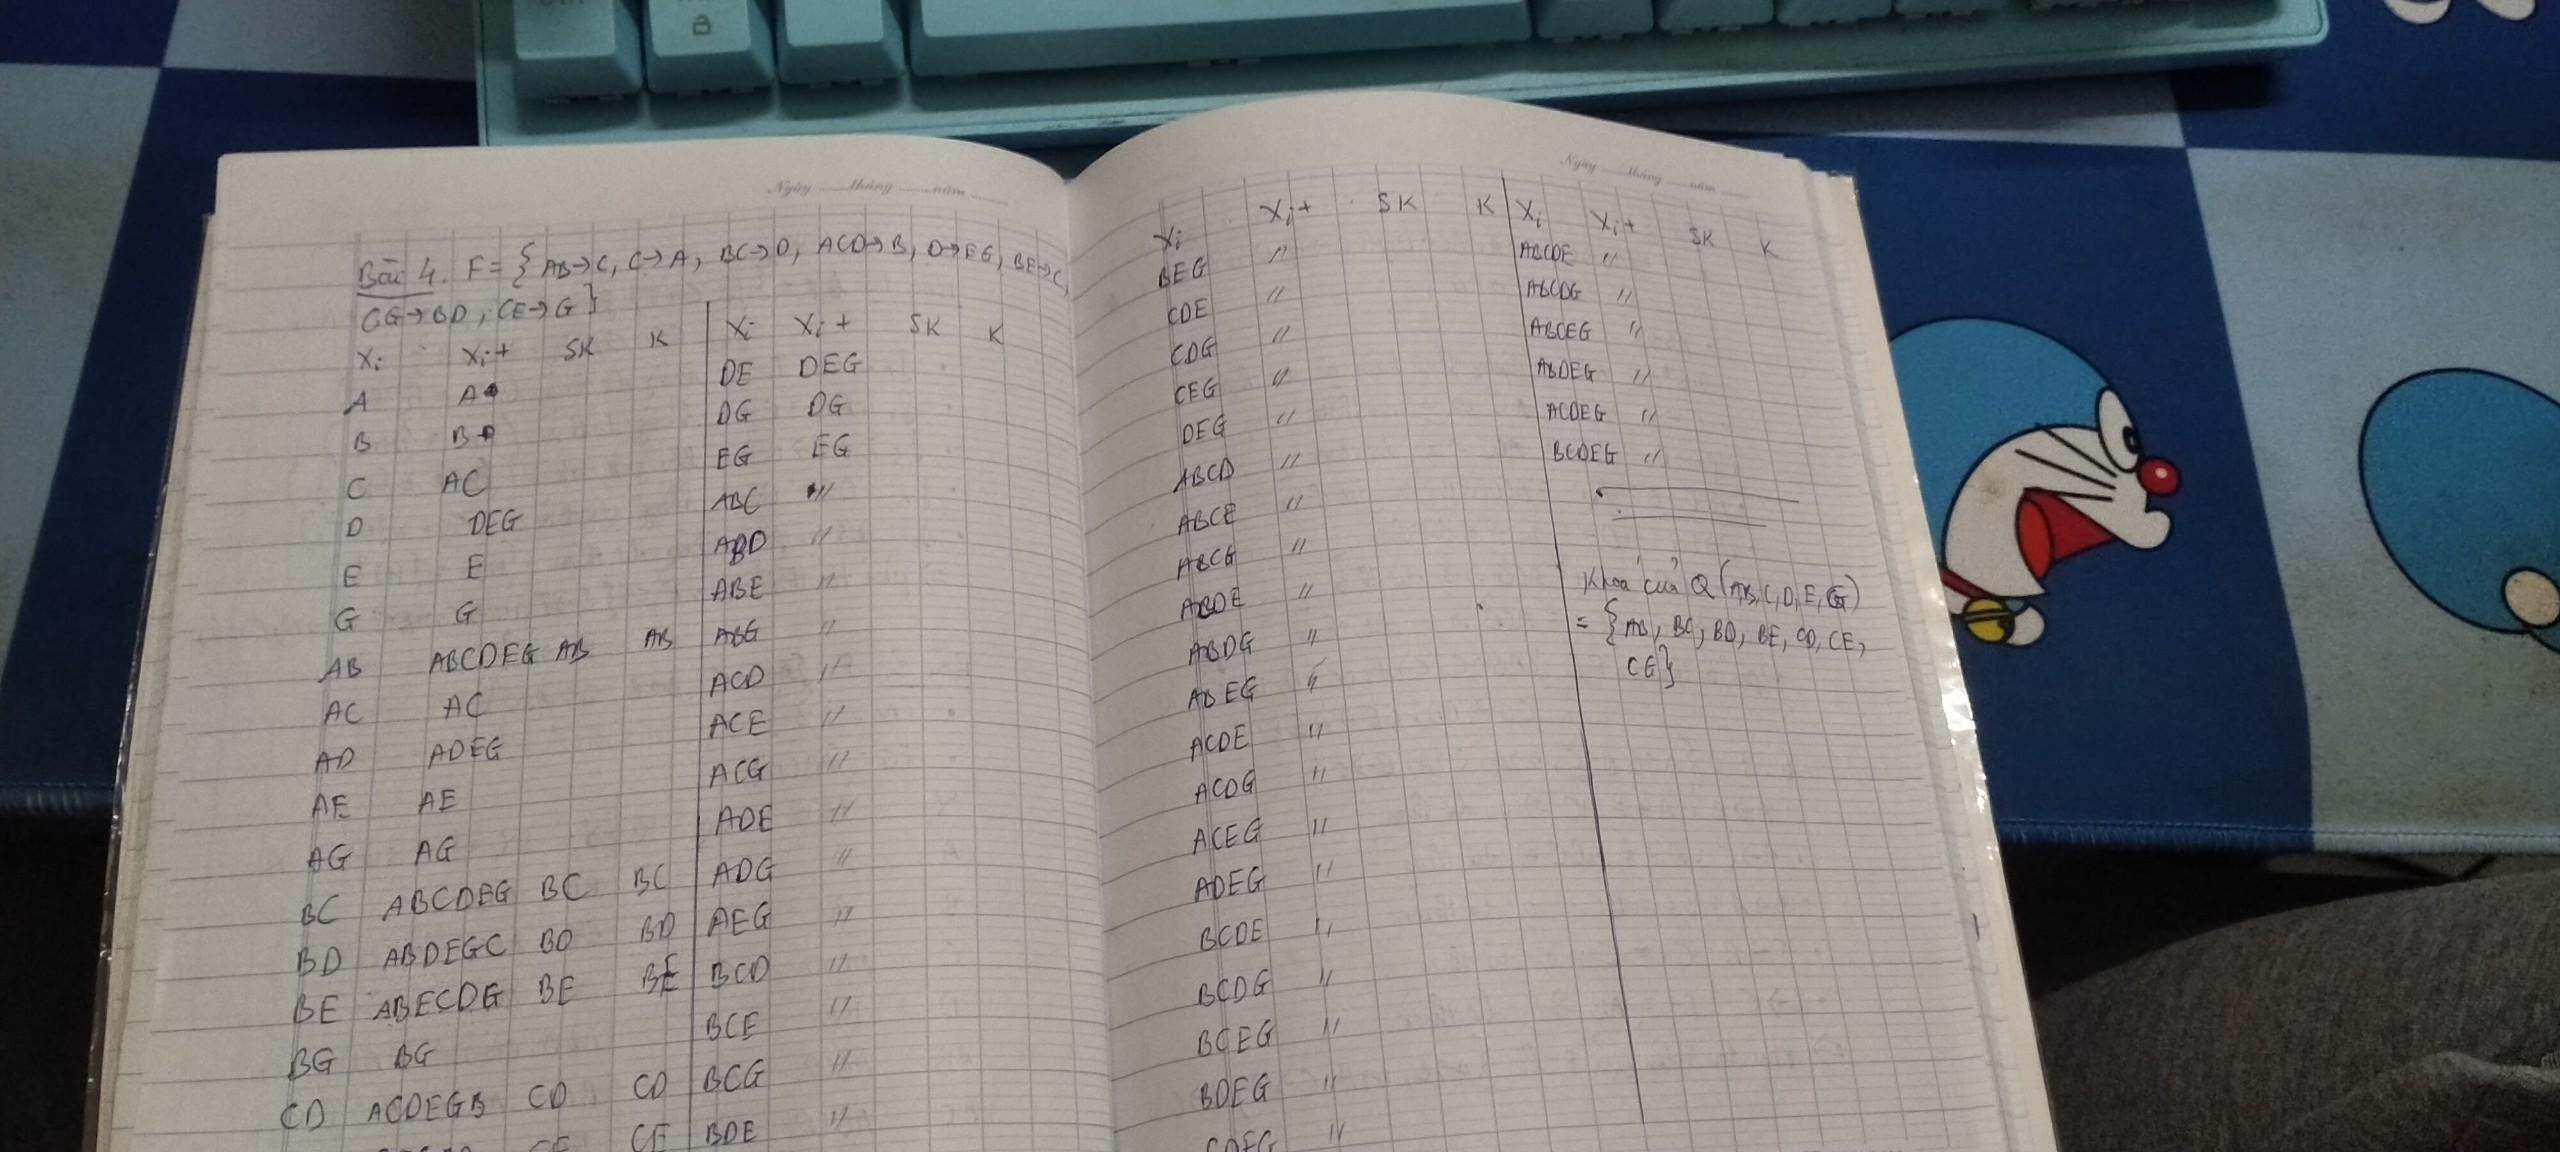 Ngày tháng năm
Bài 4. F = { AB→C, C→A, BC→D, ACD→B, D→EG, BE→C,
CG→BD, CE→G }
Xi Xi+ SK K
A A
B B
C AC
D DEG
E E
G G
AB ABCDEG AB AB
AC AC
AD ADEG
AE AE
AG AG
BC ABCDEG BC BC
BD ABDEGC BD BD
BE ABECDG BE BE
BG BG
CD ACDEGB CD CD
CE CE
Xi Xi+ SK K
DE DEG
DG DG
EG EG
ABC "
ABD "
ABE "
ABG "
ACD "
ACE "
ACG "
ADE "
ADG "
AEG "
BCD "
BCE "
BCG "
BDE "
Ngày tháng năm
Xi Xi+ SK K
BEG "
CDE "
CDG "
CEG "
DEG "
ABCD "
ABCE "
ABCG "
ABDE "
ABDG "
ABEG "
ACDE "
ACDG "
ACEG "
ADEG "
BCDE "
BCDG "
BCEG "
BDEG "
CDEG "
Xi Xi+ SK K
ABCDE "
ABCDG "
ABCEG "
ABDEG "
ACDEG "
BCDEG "
Khoá của Q (A,B,C,D,E,G)
= { AB, BC, BD, BE, CD, CE,
CG}